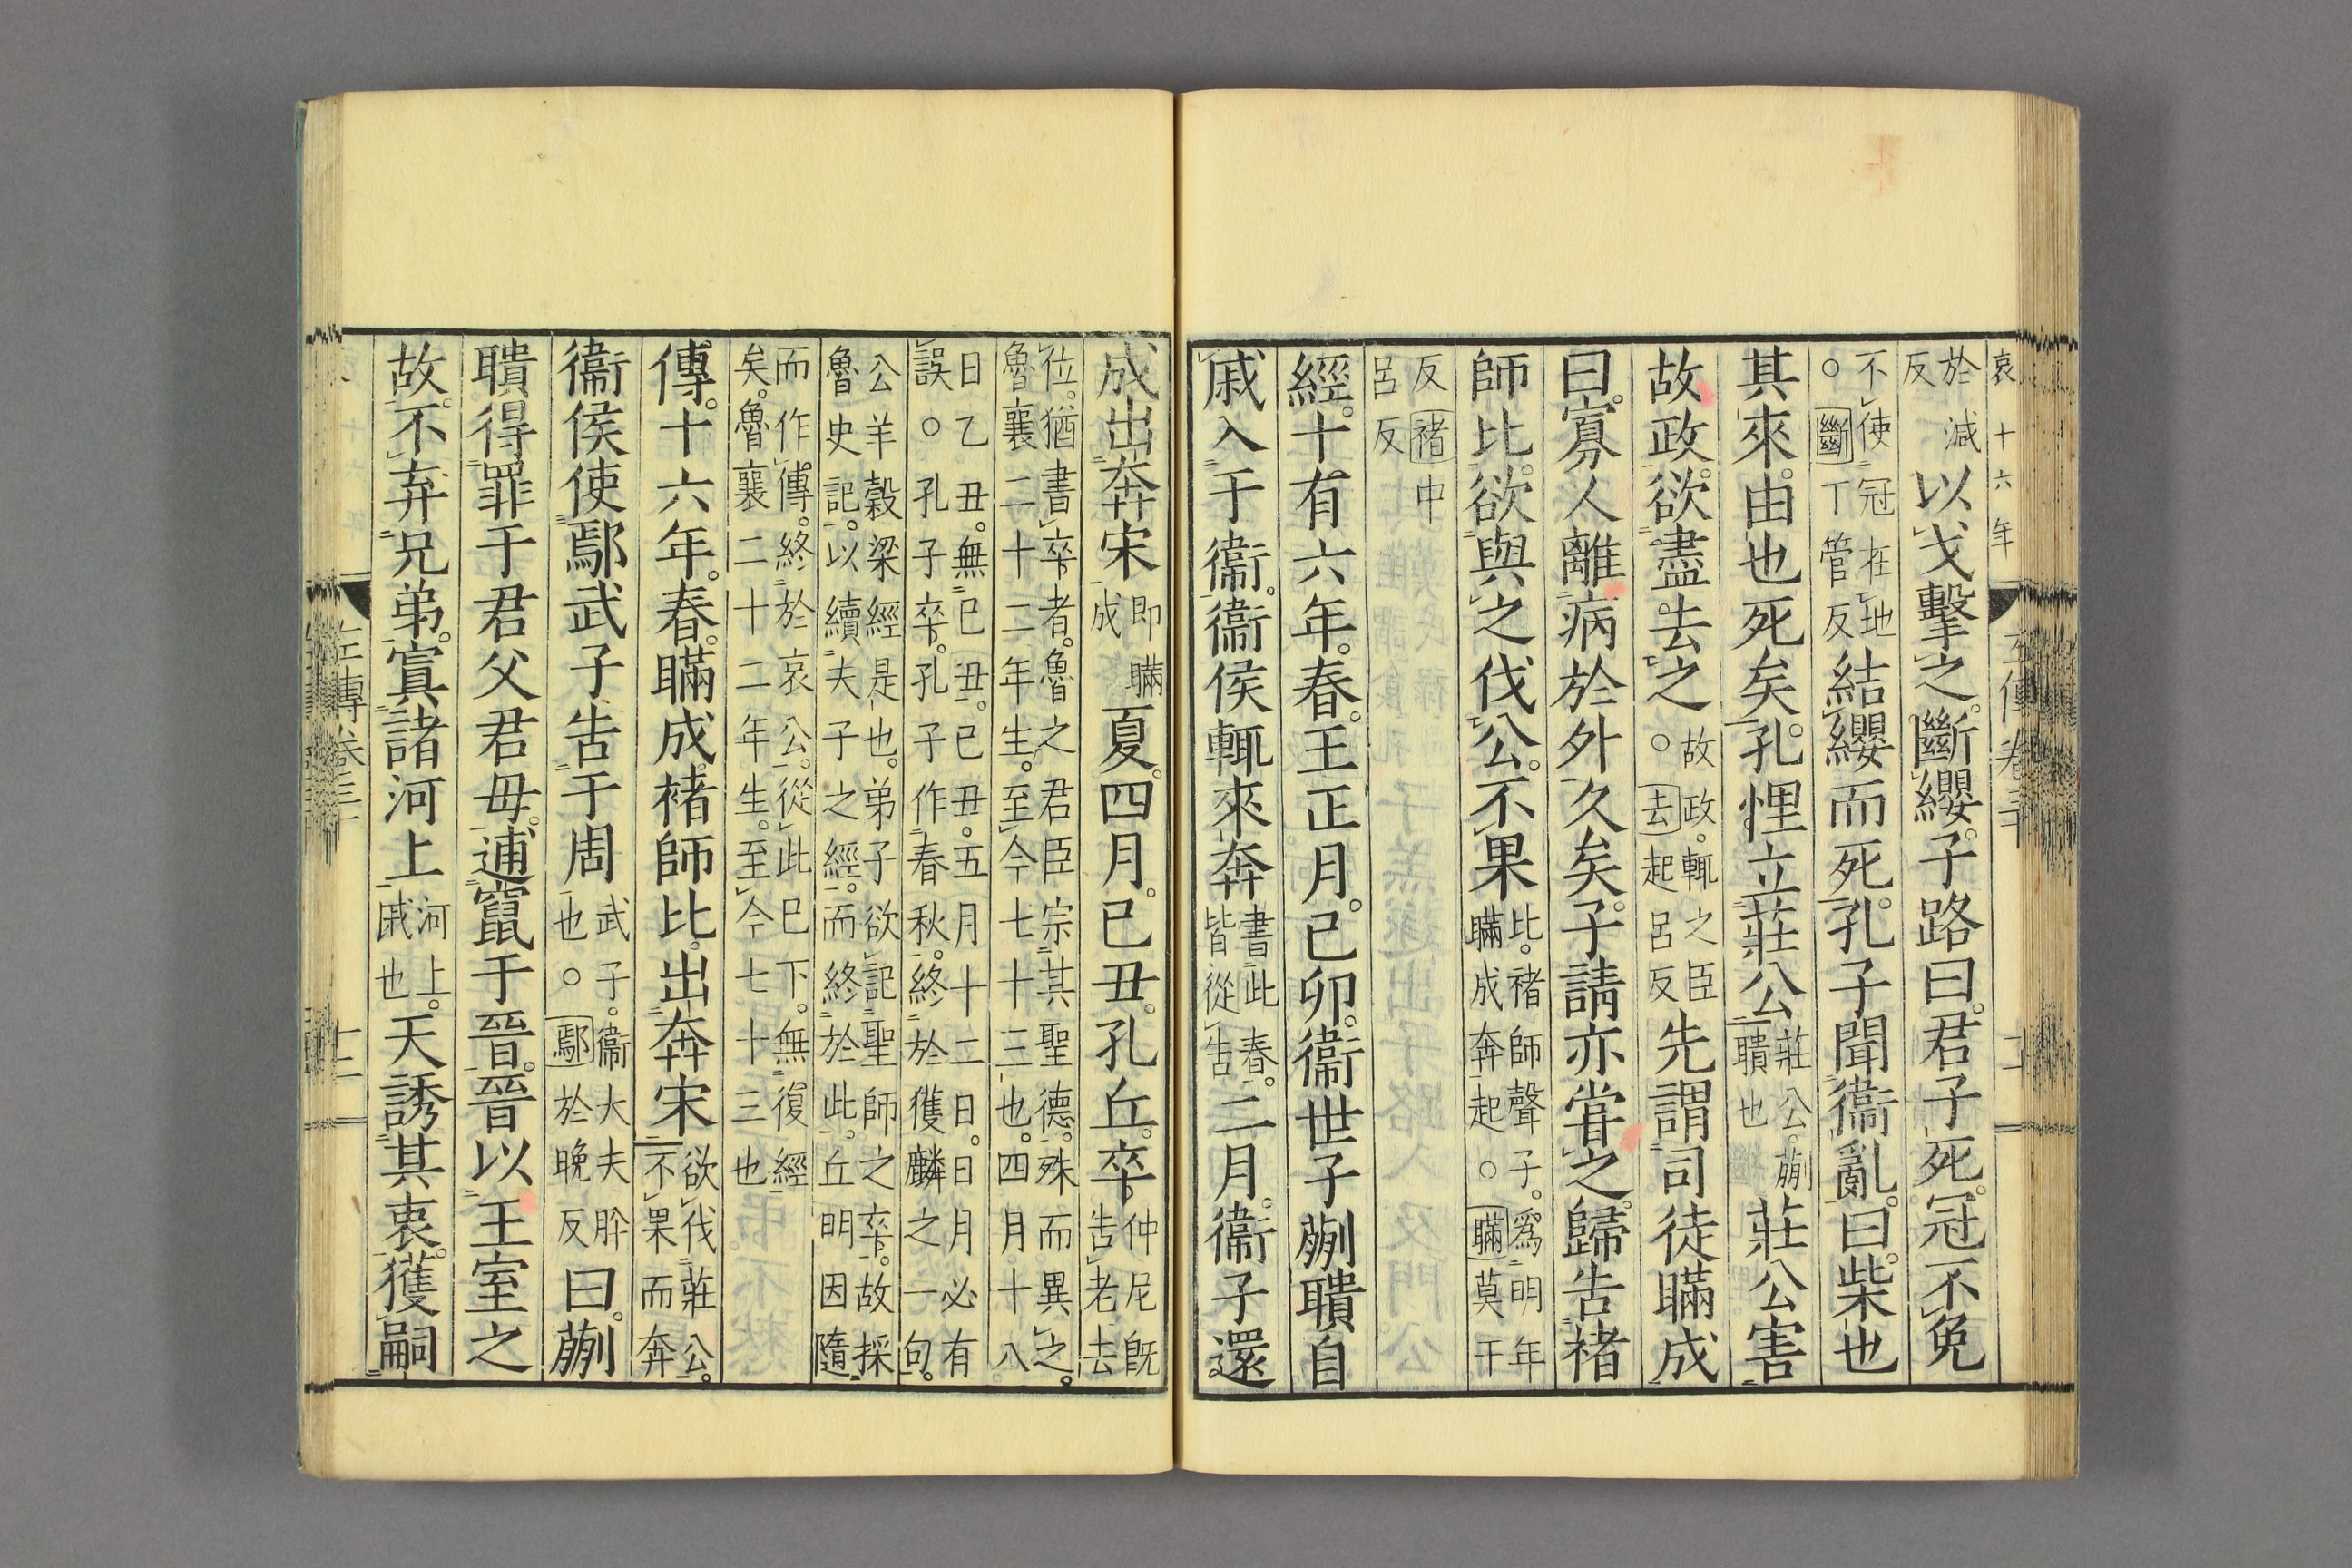 哀十六年
左傳卷三十
於減反以戈擊之斷纓子路曰君子死冠不免
不使冠在地○斷丁管反結纓而死孔子聞衞亂曰柴也
其來由也死矣孔悝立莊公莊公蒯聵也莊公害
故政欲盡去之故政輒之臣○去起呂反先謂司徒瞞成
曰寡人離病於外久矣子請亦嘗之歸告褚
師比欲與之伐公不果比褚師聲子爲明年瞞成奔起○瞞莫干
反褚中呂反
經十有六年春王正月己卯衞世子蒯聵自
戚入于衞衞侯輒來奔書此春皆從告二月衞子還
成出奔宋即瞞成夏四月己丑孔丘卒仲尼既告老去
位猶書卒者魯之君臣宗其聖德殊而異之魯襄二十二年生至今七十三也四月十八
日乙丑無己丑己丑五月十二日日月必有誤○孔子卒孔子作春秋終於獲麟之一句
公羊穀梁經是也弟子欲記聖師之卒故採魯史記以續夫子之經而終於此丘明因隨
而作傳終於哀公從此已下無復經矣魯襄二十二年生至今七十三也
傳十六年春瞞成褚師比出奔宋欲伐莊公不果而奔
衞侯使鄢武子告于周武子衞大夫肸也○鄢於晚反曰蒯
聵得罪于君父君母逋竄于晉晉以王室之
故不弃兄弟寘諸河上河上戚也天誘其衷獲嗣
左傳卷三十